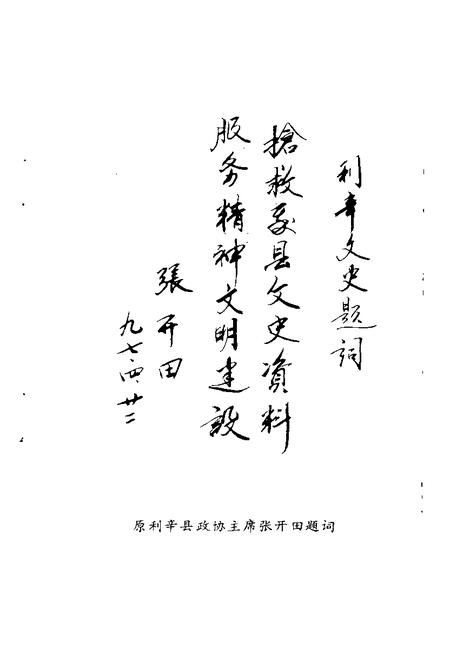 利辛文史题词
搶救我县文史资料
服务精神文明建設
張开田
九七·四·廿二
原利辛县政协主席张开田题词